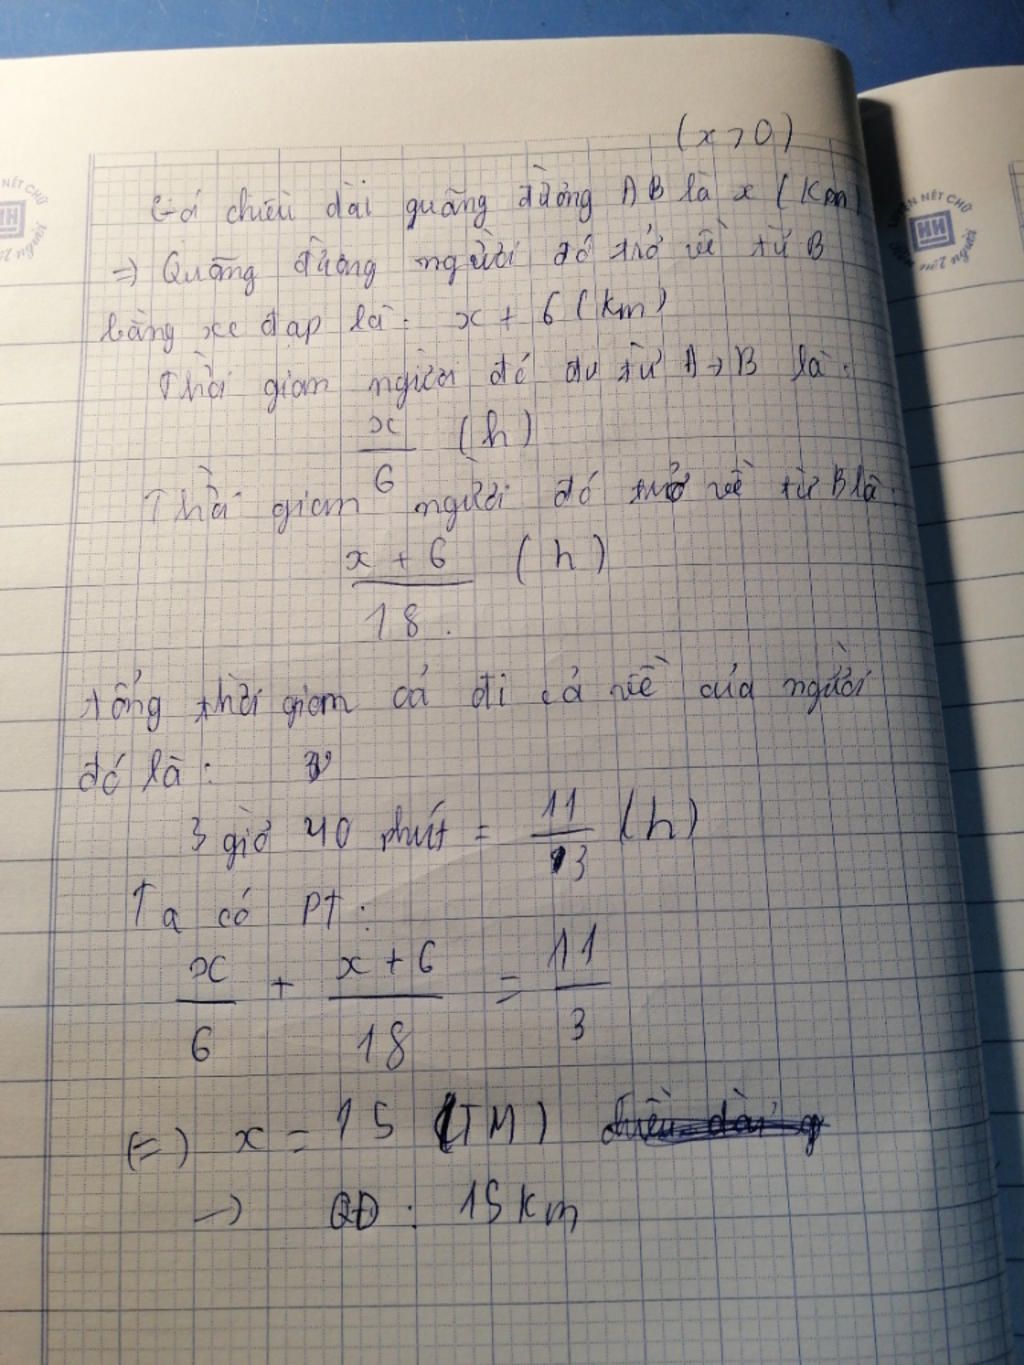 (x > 0)
Gọi chiều dài quãng đường AB là x (Km)
=) Quãng đường người đó trở về từ B
bằng xe đạp là: x + 6 (Km)
Thời gian người đó đi từ A → B là:
x/6 (h)
Thời gian người đó trở về từ B là:
x + 6/18 (h)
tổng thời gian cả đi cả về của người
đó là:
3 giờ 40 phút = 11/3 (h)
Ta có PT:
x/6 + x + 6/18 = 11/3
(=) x = 15 (TM)
→ QĐ: 15 Km
NÉT CHỮ
người
LUYỆN NÉT CHỮ
người